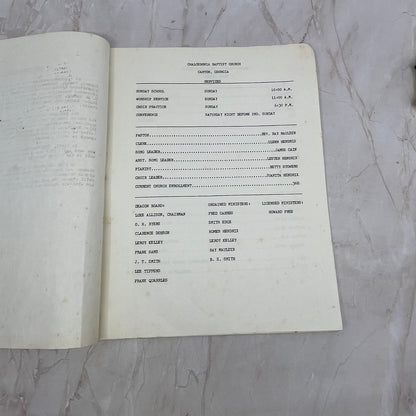 CHALCEDONIA BAPTIST CHURCH
CANTON, GEORGIA
SERVICES
SUNDAY SCHOOL SUNDAY 10:00 A.M.
WORSHIP SERVICE SUNDAY 11:00 A.M.
CHOIR PRACTICE SUNDAY 6:30 P.M.
CONFERENCE SATURDAY NIGHT BEFORE 2ND. SUNDAY
PASTOR REV. RAY MAULDIN
CLERK GLENN HENDRIX
SONG LEADER JAMES CAIN
ASST. SONG LEADER LESTER HENDRIX
PIANIST BETTY
CHOIR LEADER JUANITA HENDRIX
CURRENT CHURCH ENROLLMENT 360
DEACON BOARD: ORDAINED MINISTERS: LICENSED MINISTERS:
LOKE ALLISON, CHAIRMAN FRED GARNER HOWARD FREE
O. K. BYERS SMITH EDGE
CLARENCE DOBSON HOMER HENDRIX
LEROY KELLEY LEROY KELLEY
FRANK RAY MAULDIN
J. T. SMITH B. E. SMITH
LEE TIPPENS
FRANK QUARLES